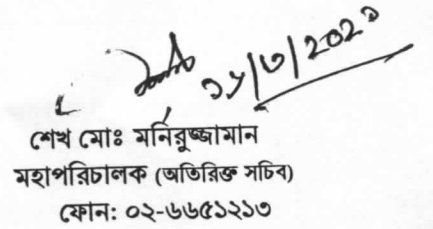 শেখ মোঃ মনিরুজ্জামান
মহাপরিচালক (অতিরিক্ত সচিব)
ফোন: ০২-৬৬৫১২১৩